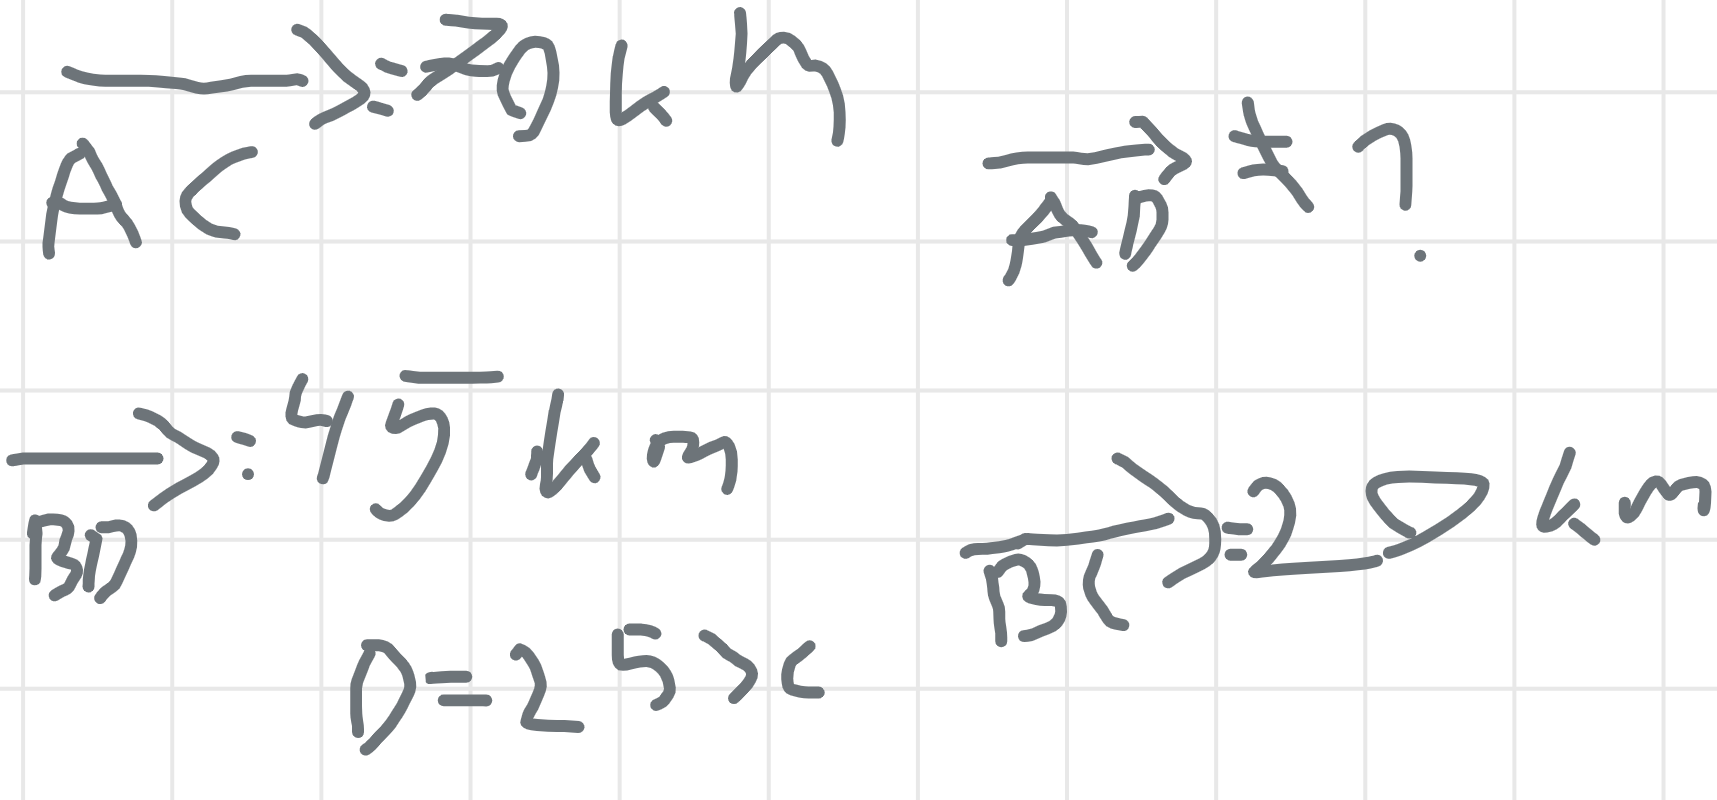 AC = 70 km
AD ≠ ?
BD = 45 km
BC = 20 km
D = 25 > c